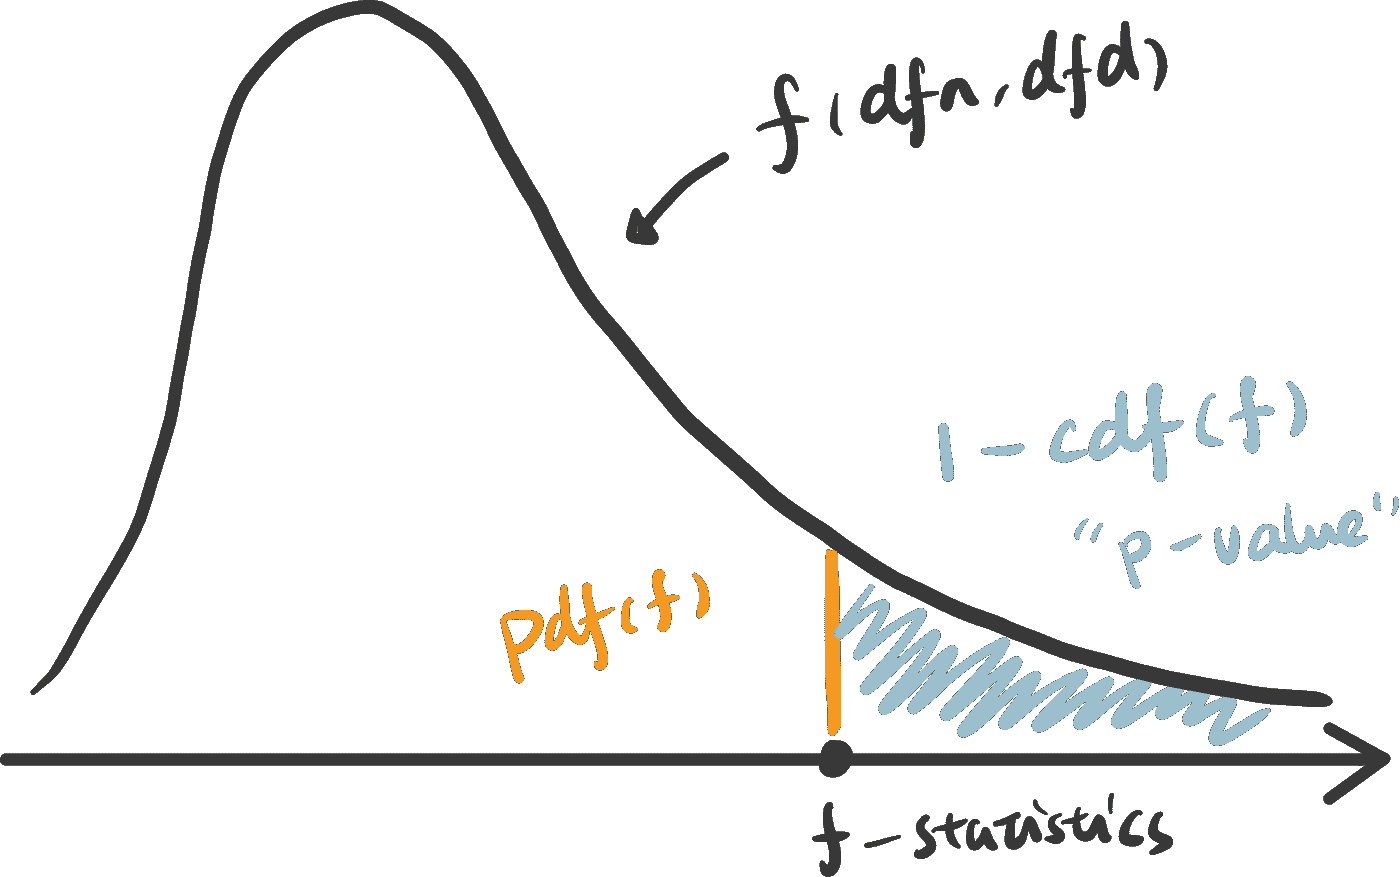 f(dfn, dfd)
1-cdf(f)
"p-value"
pdf(f)
f-statistics